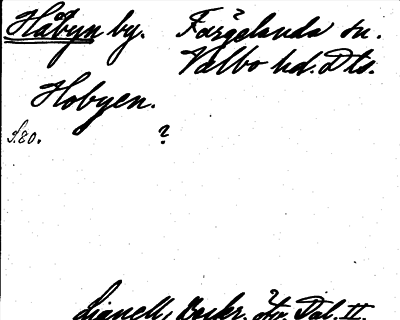 Håbyn by. Färgelanda sn.
Valbo hd. Dls.
Hobyen.
S.80. ?
Lignell, Beskr. öfv. Dal. II.